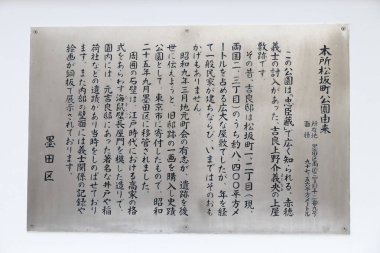 本所松坂町公園由来
この公園は、"忠臣蔵"で広く知られる、赤穂
義士の討入があった、吉良上野介義央の上屋
敷跡です。
その昔、吉良邸は松坂町一、二丁目(現、
両国二、三丁目)のうち約八、四〇〇平方メ
ートルを占める広大な屋敷でしたが、年を経
て一般民家が建ちならび、いまではそのおも
かげもありません。
昭和九年三月地元町会の有志が、遺跡を後
世に伝えようと、旧邸跡の一画を購入し史蹟
公園として、東京市に寄付したもので、昭和
二十五年九月墨田区に移管されました。
周囲の石壁は、江戸時代における高家の格
式をあらわす海鼠壁長屋門を模した造りで、
園内には、元吉良邸にあった著名な井戸や稲
荷社などの遺蹟があり当時をしのばせており
ます。また内部の壁面には義士関係の記録や
絵画が銅板で展示されております。
墨田区